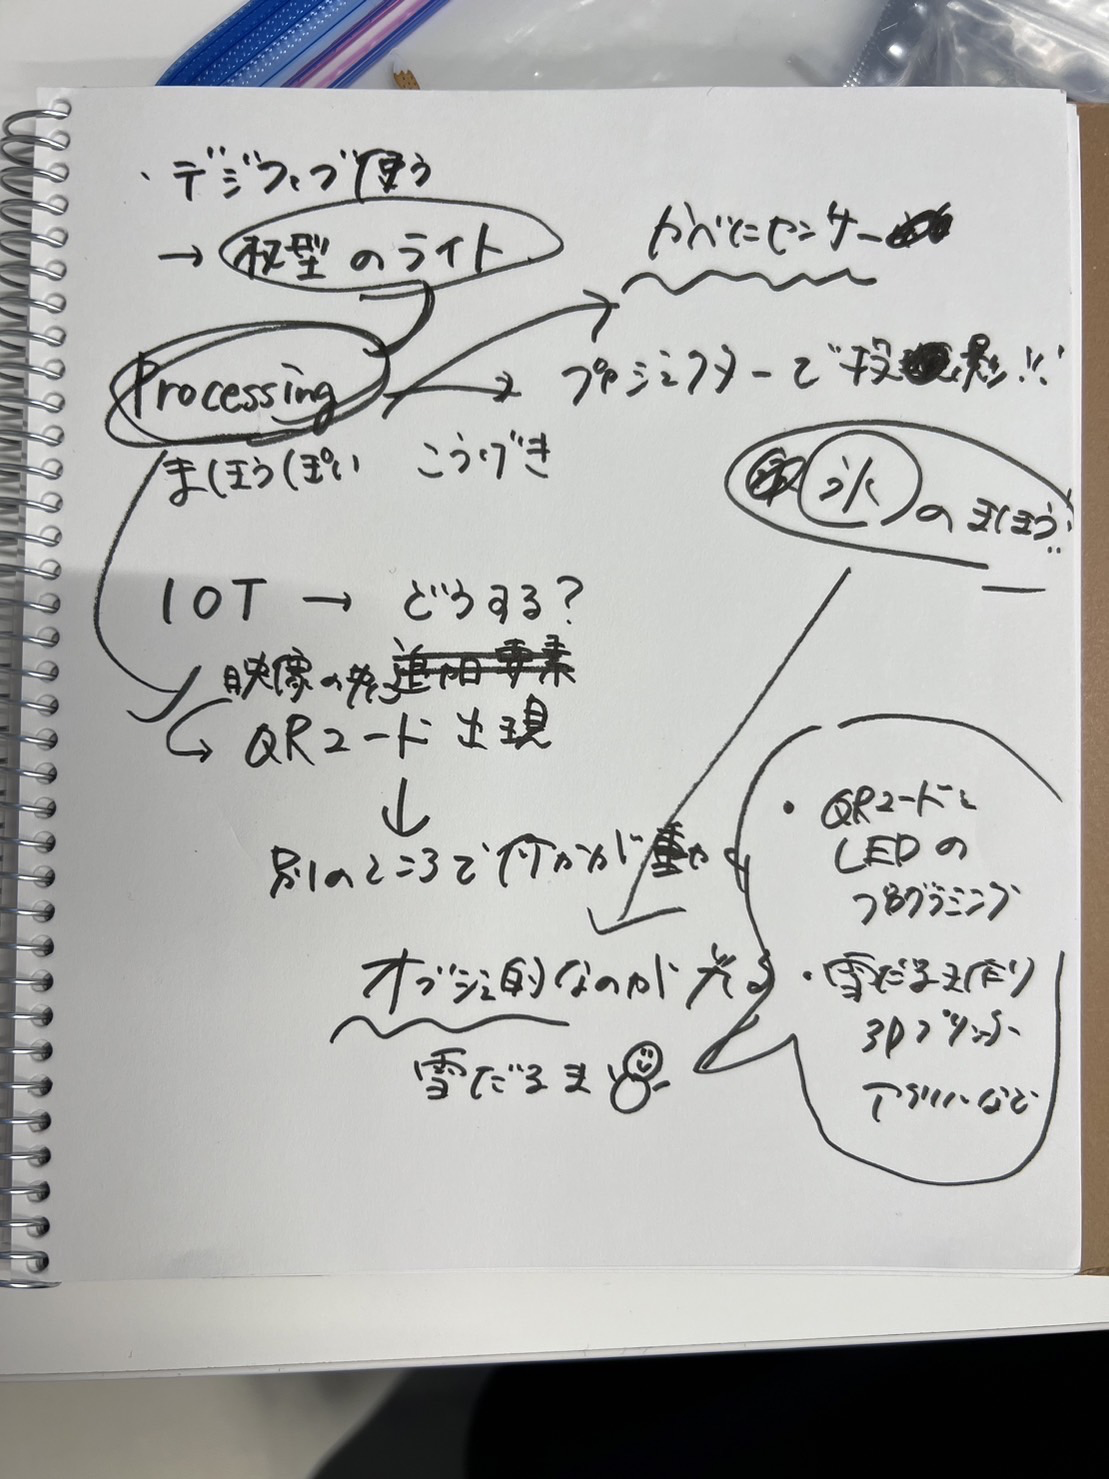 ・デジファブ使う
→ 杖型のライト
かべにセンサー
Processing
→ プロジェクターで投影!!
まほうっぽい こうげき
氷のまほう!!
IOT → どうする?
映像の後
QRコード出現
↓
別のところで何かが動く
オブジェ的なのが光る
雪だるま
・QRコードと
LEDの
プログラミング
・雪だるま作り
3Dプリンター
アクリルなど